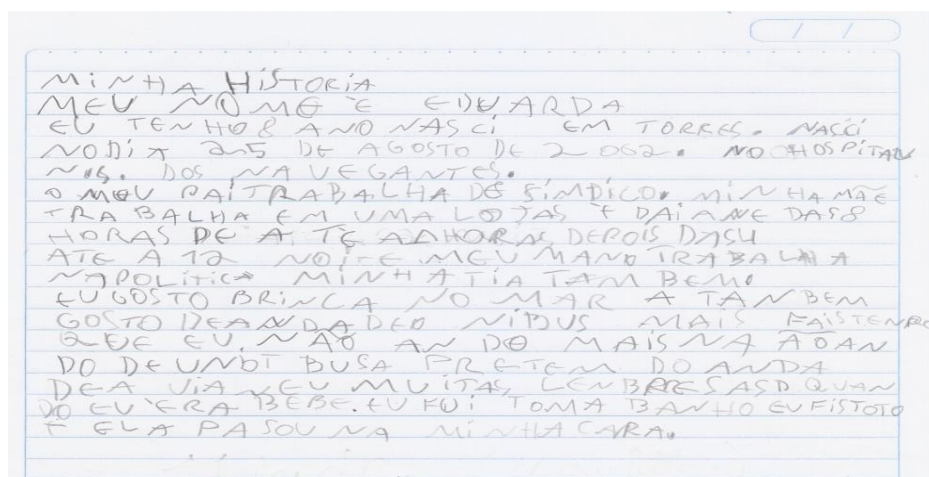 / /
MINHA HISTORIA
MEU NOME E EDUARDA
EU TENHO 8 ANO NASCI EM TORRES. NASCI
NODIA 25 DE AGOSTO DE 2002. NO HOSPITAU
DOS NAVEGANTES.
O MEU PAITRABALHA DE SIMDICO. MINHA MÃE
TRABALHA EM UMA LOJAS E DAIANE DAS8
HORAS DE A TE HORAS DEPOIS
ATE A 12 NOITE MEU MANO TRABALHA
NAPOLITICA MINHA TIA TAM BEM.
EU GOSTO BRINCA NO MAR A TANBEM
GOSTO DEANDADEO NIBUS MAIS FAISTENPO
QUE EU. NAO AN DO MAIS NA
DO DE BUSA PRETEM DO ANDA
DEA VIA EU MUITAS QUAN
DO EU ERA BEBE. EU FUI TOMA BANHO EU FISTOTO
E ELA PASOU NA MINHA CARA.